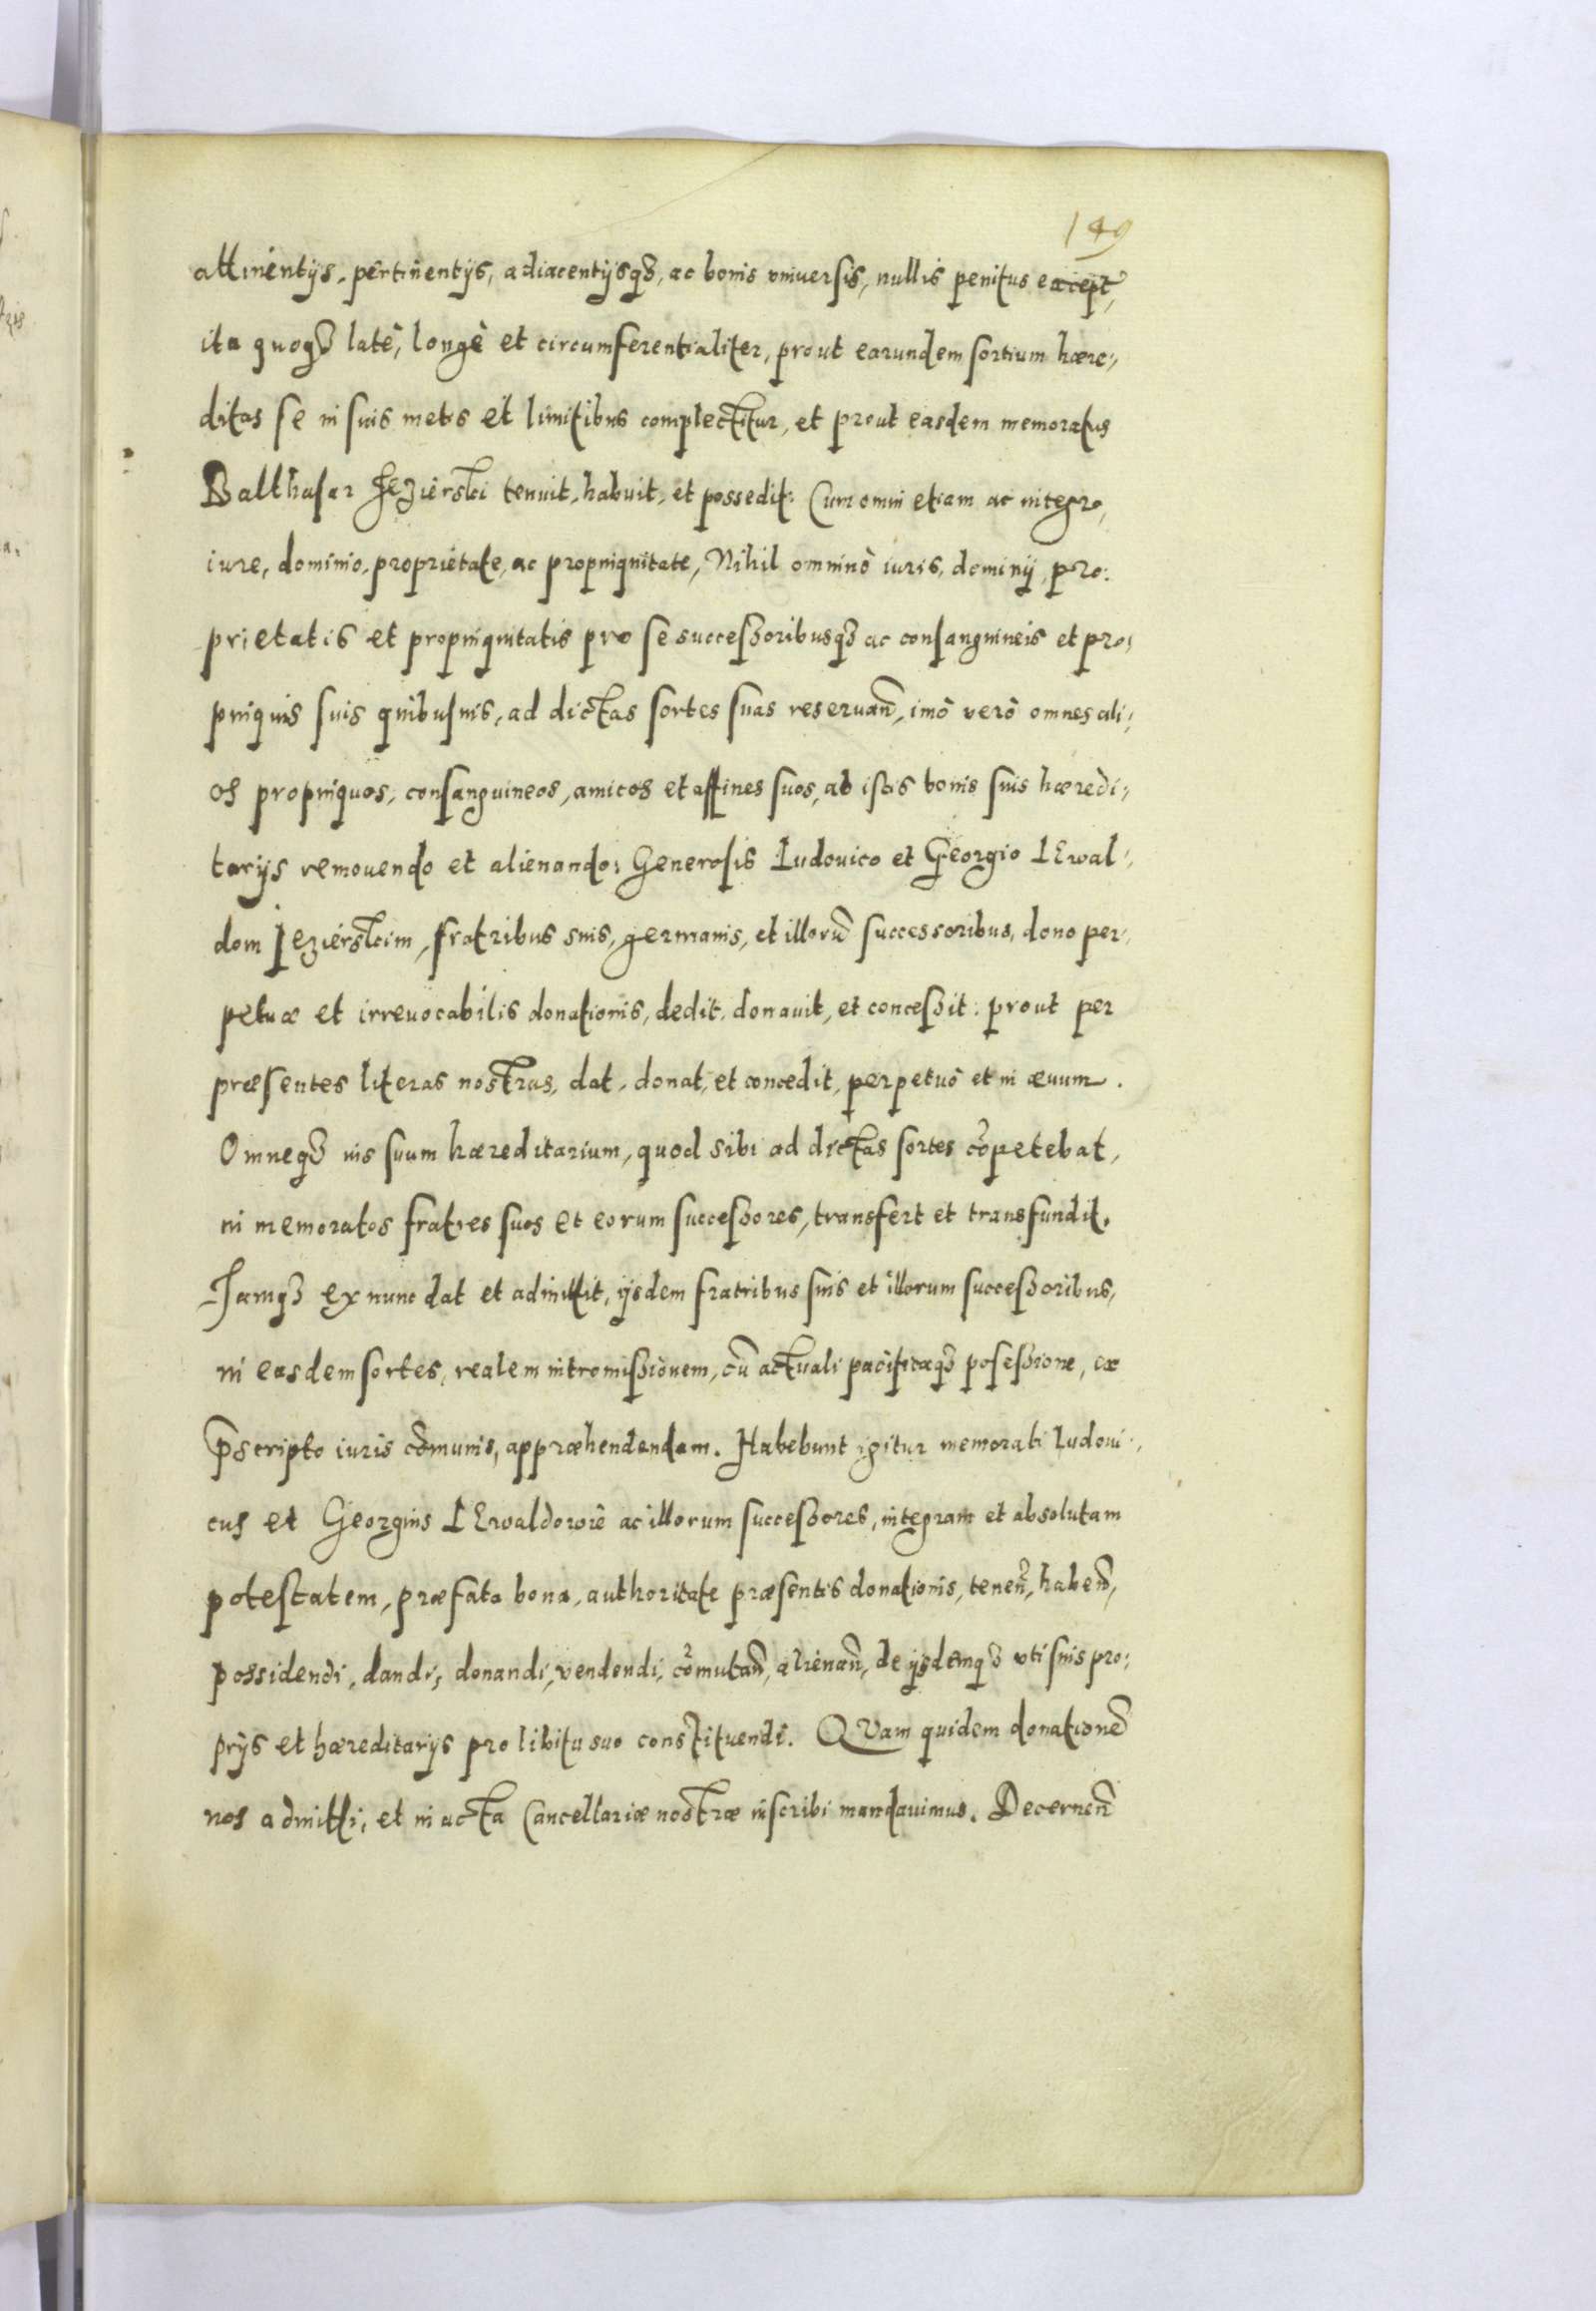 149
attinentijs, pertinentijs, adiacentijsq₃, ac bonis vniuersis, nullis penitus except̃,
ita quoq₃ latè, longè et circumferentialiter, prout earundem sortium hære,,
ditas se in suis metis et limitibus complectitur, et prout easdem memoratus
Balthasar Jezierski tenuit, habuit, et possedit: Cum omni etiam ac integro,
iure, dominio, proprietate, ac propinquitate, Nihil omninò iuris, dominij, pro:
prietatis et propinquitatis pro se successoribusq₃ ac consanguineis et pro,,
pinquis suis quibusuis, ad dictas sortes suas reseruan̄, imò verò omnes ali,,
os propinquos, consanguineos, amicos et affines suos, ab istis bonis suis hæredi,,
tarijs remouendo et alienando: Generosis Ludouico et Georgio LEwal,,
dom Jezierskim, fratribus suis, germanis, et illorū successoribus, dono per,,
petuæ et irreuocabilis donationis, dedit, donauit, et concessit: prout per
præsentes literas nostras, dat, donat, et concedit, perpetuò et in æuum.
Omneq₃ ius suum hæreditarium, quod sibi ad dictas sortes cōpetebat,
in memoratos fratres suos et eorum successores, transfert et transfundit.
Jamq₃ ex nunc dat et admittit, ijsdem fratribus suis et illorum successoribus,
in easdem sortes, realem intromissionem, cū actuali pacificaq₃ posessione, ex
p̄scripto iuris cōmunis, appræhendendam. Habebunt igitur memorati Ludoui,,
cus et Georgius LEwaldowie ac illorum successores, integram et absolutam
potestatem, præfata bona, authoritate præsentis donationis, tenen̄, haben̄,
possidendi, dandi, donandi, vendendi, cōmutan̄, alienan̄, de ijsdemq₃ vti suis pro,,
prijs et hæreditarijs pro libitu suo constituendi. QVam quidem donationē
nos admitti, et in acta Cancellariæ nostræ inscribi mandauimus. Decernen̄